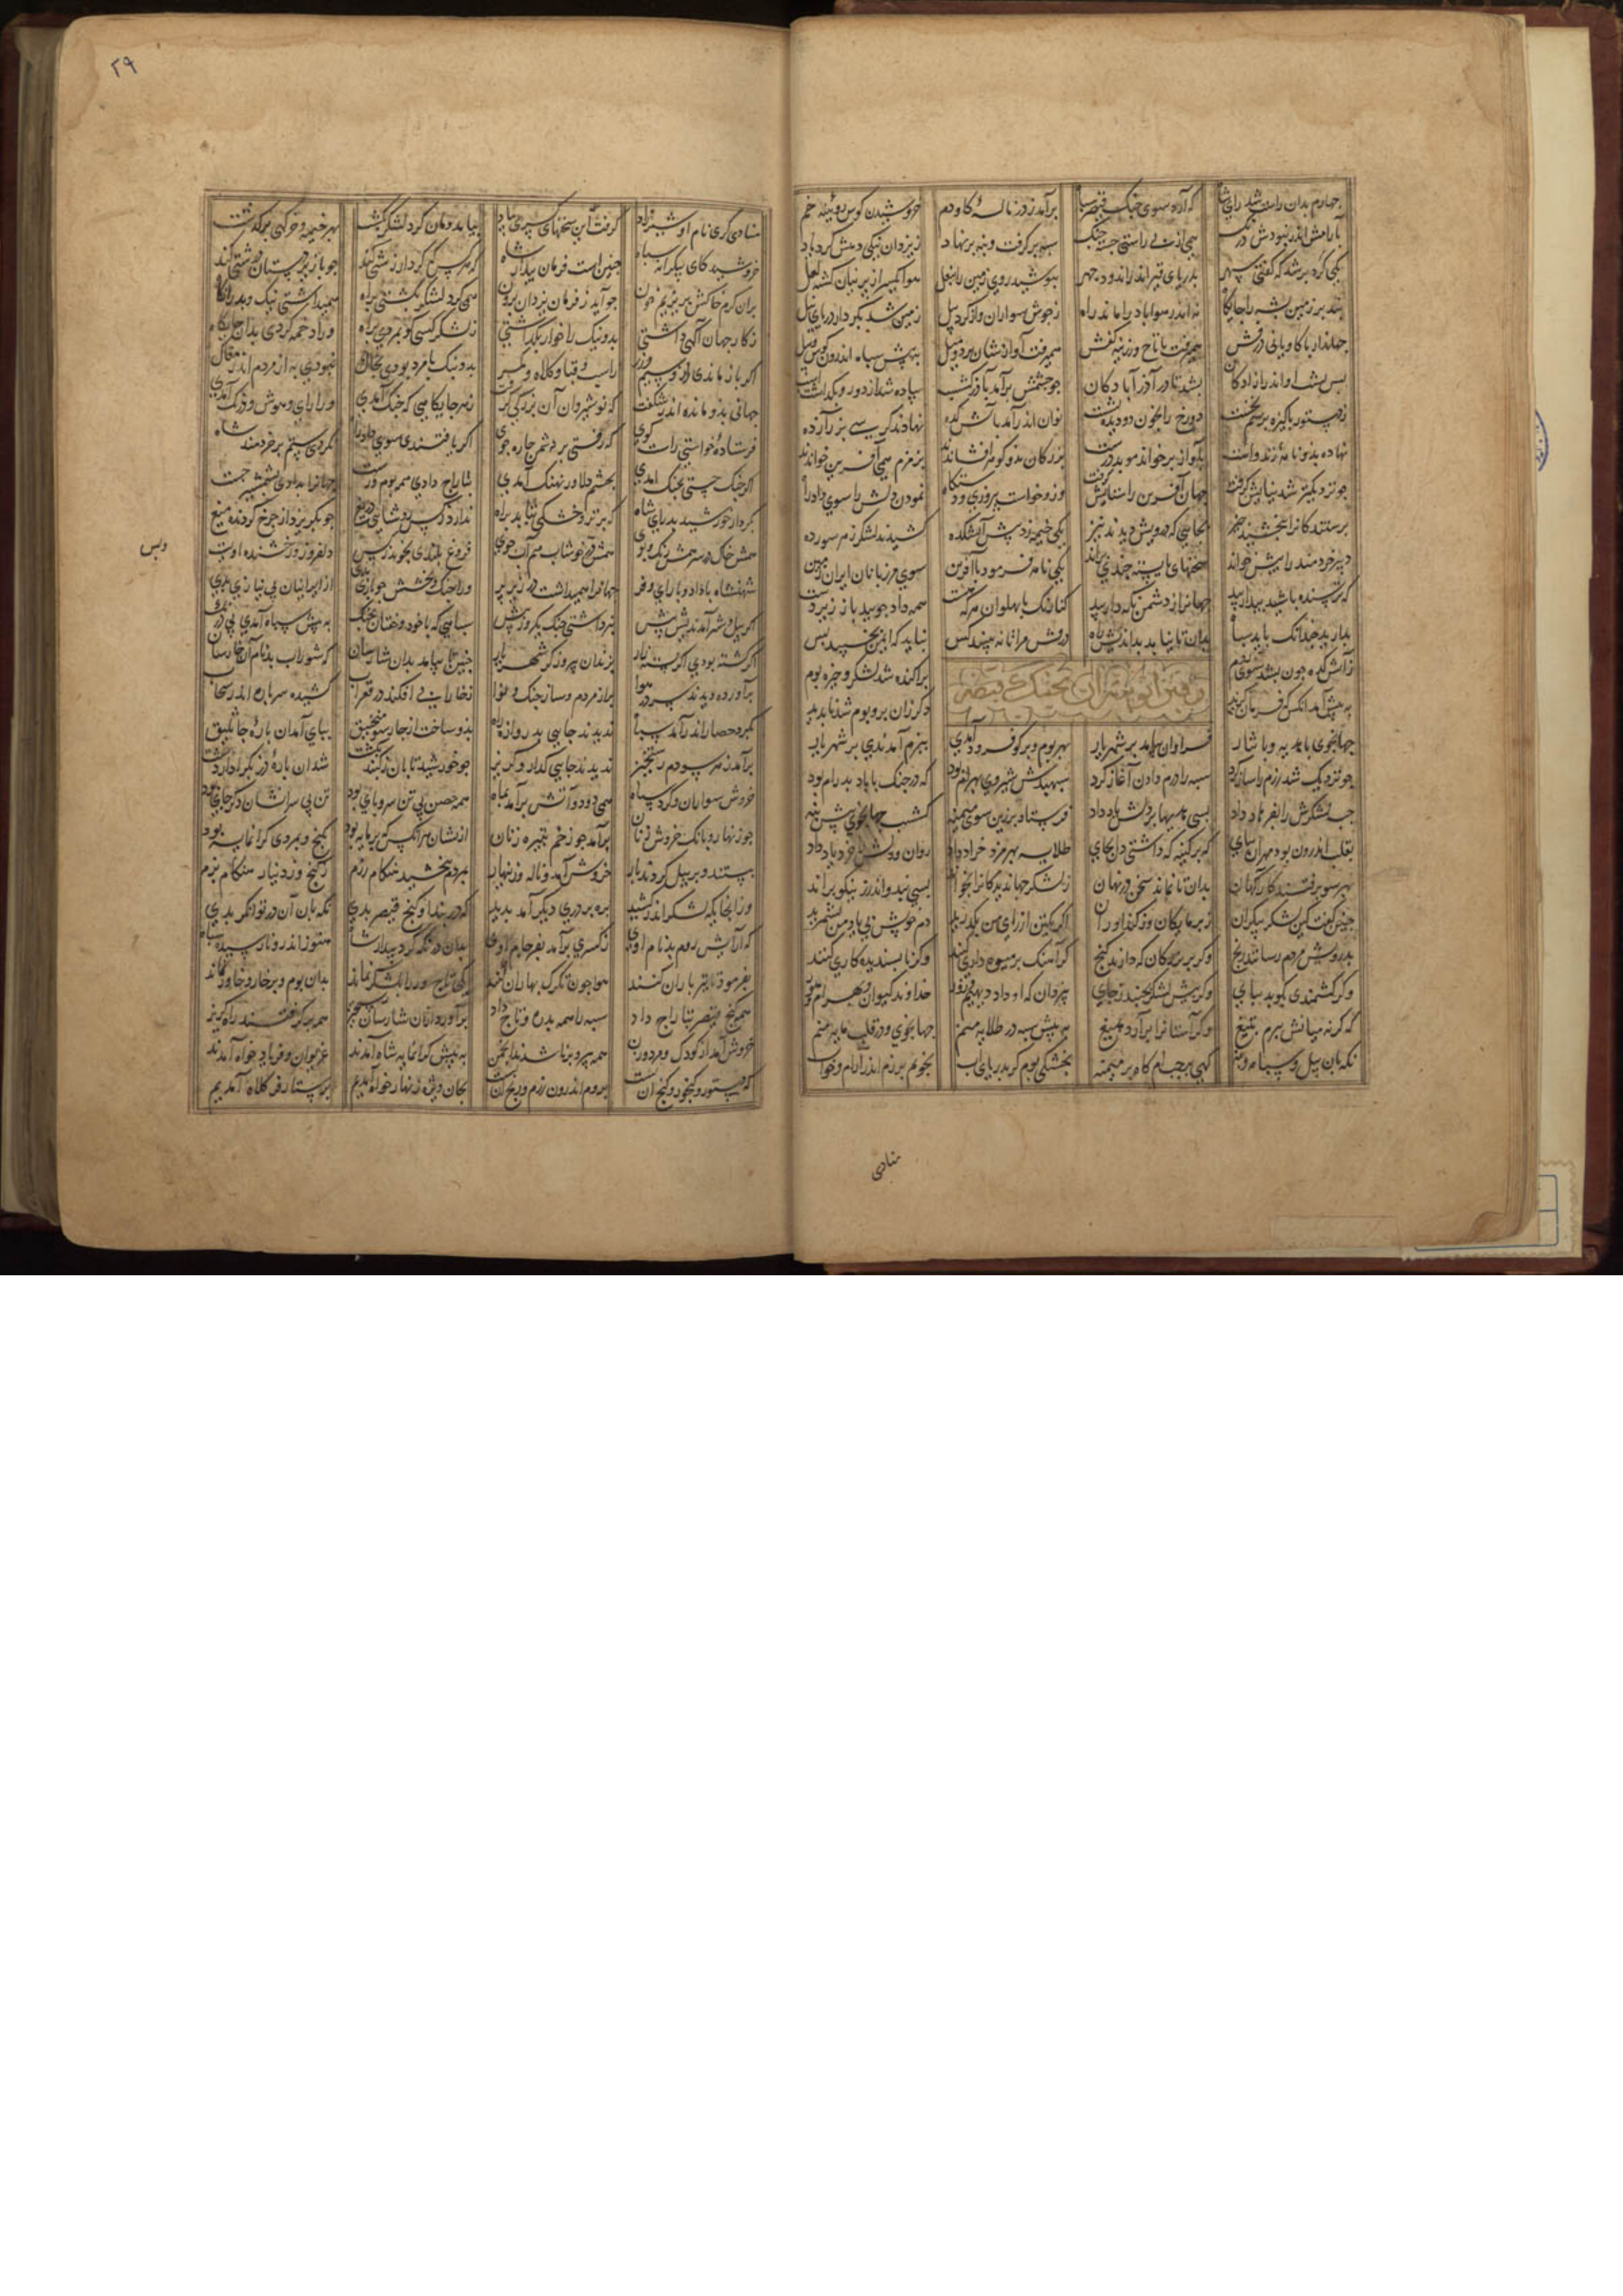 چهارم بدان راست شد رای شاه که آرد سوی جنک قیصر سپاه برآمد ز در نالهٔ کاودم خروشیدن کوس روئینه خم
بآرامش اندر نبودش درنک همی از پی راستی جست جنک سپه برکرفت و بنه برنهاد ز یزدان نیکی دهش کرد یاد
یکی کرد برشد که کفتی سپهر بدریای قیر اندر اندود چهر بپوشید روی زمین را بنعل هوا یکسر از پرنیان کشته لعل
نبد بر زمین پشه را جایکاه نه اندر هوا باد را ماند راه ز جوش سواران و از کرد پیل زمین شد بکردار دریای نیل
جهاندار با کاویانی درفش همیرفت با تاج و زرینه کفش همیرفت آواز نشان بر دو میل به پیش سپاه اندرون کوس و پیل
پس پشت او اندر آزادکان بشد تا در آذرآبادکان چو چشمش برآمد بآذرکشسپ پیاده شد از دور و بکذاشت اسپ
ز دستور پاکیزه برسم بجست دو رخ را بخون دو دیده بشست نوان اندرآمد بآتشکده نهادند کرسی بزر آزده
نهاده بدو نامهٔ زند و است بآواز برخواند موبد درست بزرکان بدو کوهر افشاندند بزمزم همی آفرین خواندند
چو نزدیکتر شد نیایش کرفت جهان آفرین را ستایش کرفت وزو خواست پیروزی و دستکاه نمودن دلش را سوی داد راه
پرستندکانرا ببخشید چیز بجایی که درویش دیدند نیز یکی خیمه زد پیش آتشکده کشیدند لشکر ز هر سو رده
دبیر خردمند را پیش خواند سخنهای بایسته چندی براند یکی نامه فرمود با آفرین سوی مرزبانان ایران زمین
که ترسنده باشید و بیدار بید جهانرا ز دشمن نکه دار بید کنارنک با پهلوان هرکه هست همه داد جویید با زیردست
بدارید چندانک باید سپاه بدان تا نیابد بداندیش راه درفش مرا تا نه بیند کس نباید که ایمن بخسپد پس
ز آتشکده چون بشد سوی روم پراکنده شد لشکر و چیره بوم
به پیش آمد آنکس که فرمان کزید دکر زان بر و بوم شد ناپدید
رفتن انوشیروان بجنک قیصر
جهانجوی با هدیه و با نثار فراوان بیامد بر شهریار بهر بوم و بر کو فرود آمدی ببزم آمدندی بر شهریار
چو نزدیک شد رزم را ساز کرد سپه را درم دادن آغاز کرد سپهبدش شیروی بهرام بود که در جنک با باد بدرام بود
چپ لشکرش را بفرهاد داد بسی پندها بر دلش یاد داد فرستاد برزین سوی میمنه کشسپ جهانجوی پیش بنه
بقلب اندرون بود مهران بپای که بر کینه که داشتی دل بجای طلایه بهرمزد خراد داد روان و دلش را خرد یاد داد
بهر سو برفتند کارآکهان بدان تا نماند سخن در نهان ز لشکر جهاندیدکانرا بخواند بسی پند و اندرز نیکو براند
چنین کفت کین لشکر بیکران ز بر مایکان وز کنداوران اکر یکتن از رای من بکذرند دم خویش بی یاد من بشمرند
بدرویش مردم رسانند رنج وکر بر بزرکان که دارند کنج کر آهنک بر میوه داری کنند وکر ناپسندیده کاری کنند
وکر کشتمندی بکوبد بپای وکر پیش لشکر بجنبد ز جای بیزدان که او داد دیهیم و زور خداوند کیوان و بهرام و هور
که کرنه میانش ببرم بتیغ وکر آسمانرا برآرد بمیغ به پیش سپه در طلایه منم جهانجوی و در قلب مایه منم
نکهبان پیل و سپاه و بنه کهی بر چپ ام کاه بر میمنه بخشکی بوم کر بدریای آب بجویم برزم اندر آرام و خواب
منادی
۲۹
منادی کری نام او شیرزاد کرفت این سخنهای کسری بیاد بیامد دوان کرد لشکر بکشت بهر خیمه و خرکهی برکذشت
خروشید کای بیکرانه سپاه چنین است فرمان بیدار شاه که هرکس که کردار زشتی کند
بران کرم خاکش بریزیم خون چو آید ز فرمان یزدان برون همی کرد لشکر بکشتی براه همیداشتی نیک و بد را نکاه
ز کار جهان آکهی داشتی بد و نیک را خوار نکذاشتی ز لشکر کسی کو بمردی براه ورا دخمه کردی بدان جایکاه
اکر باز ماندی ازو زر و سیم کلاه و کمر بد و نیک با مرد بودی بخاک نبودی به از مردم اندر مغاک
جهانی بدو مانده اندر شکفت که نوشیروان آن بزرکی کرفت بهر جایکاهی که جنک آمدی ورا رای و هوش و درنک آمدی
فرستادهٔ خواستی راست کوی که رفتی بر دشمن چاره جوی اکر یافتندی سوی داد راه نکردی ستم بر خردمند شاه
اکر جنک جستی بجنک آمدی بخشم دلاور نهنک آمدی بتاراج دادی همه بوم و رست جهانرا بداد و بشمشیر جست
بکردار خورشید بد رای شاه که بر تر و خشکی بتابد براه ندارد ز کس روشنایی دریغ چو بکریزد از چرخ کردنده میغ
همش خاک و هم ریک و هم رنک و بوی همش در خوشاب و هم آب جوی فروغ بلندی نجوید ز کس دلفروز و رخشنده اویست
شهنشاه با داد و با رای و فر جهانرا همیداشت در زیر پر ورا جنک و بخشش چو بازی بدی از ایرانیان بی نیازی بدی
اکر پیل و شیر آمدندیش پیش نه برداشتی جنک یکروز بیش سپاهی که با خود و خفتان جنک به پیش سپاه آمدی بی درنک
اکر کشته بودی اکر بسته زار بزندان پیروزکر شهریار چنین تا بیامد بدان شارسان که شوراب بد نام آن کارسان
برآورده دیدند سر در هوا پر از مردم و ساز جنک و نوا ز خارا پی افکنده در قعر آب کشیده سر باره اندر سحاب
بکرد حصار اندر آمد سپاه ندیدند جایی بدروازه راه بدو ساخت از چار سو منجنیق بپای آمد آن بارهٔ جاثلیق
برآمد ز هر سو دم رستخیز ندیدند جایی کذار و کریز چو خورشید تابان ز کنبد بکشت شد آن بارهٔ دز بکردار دشت
خروش سواران و کرد سپاه همی دود و آتش برآمد بماه همه حصن بی تن سر و پای بود تن بی سرانشان دکر جای بود
چو زنهار و بانک خروش زنان برآمد چو زخم تبیره زنان از نشان هرآنکس که پرمایه بود بکنج و بمردی کرانمایه بود
ببستند و بر پیل کردند بار خروش آمد و ناله و زینهار بمردم ببخشید هنکام رزم ز کنج و ز دینار هنکام بزم
وزانجایکه لشکر اندر کشید بره بر دزی دیکر آمد پدید که در بند او کنج قیصر بدی نکهبان آن دز توانکر بدی
که آرایش روم بد نام اوی ز کسری برآمد بفرجام اوی بدان دز نکه کرد بیدار شاه هنوز اندر و نارسیده سپاه
بفرمود تا تیر باران کنند هوا چون تکرک بهاران کنند یکی تاج ور را بلشکر نماند بدان بوم و بر خار و خاور نماند
همه کنج قیصر بتاراج داد سپه را همه بدره و تاج داد برآورد زان شارسان رستخیز همه برکرفتند راه کریز
خروش آمد از کودک و مرد و زن همه پیر و برنا شدند انجمن به پیش کرانمایه شاه آمدند غریوان و فریادخواه آمدند
که دستور و کنجور و کنج آن تست بروم اندرون رزم و رنج آن تست بجان ویژه زنهار خواه توییم پرستار فر کلاه آمدیم
ویس